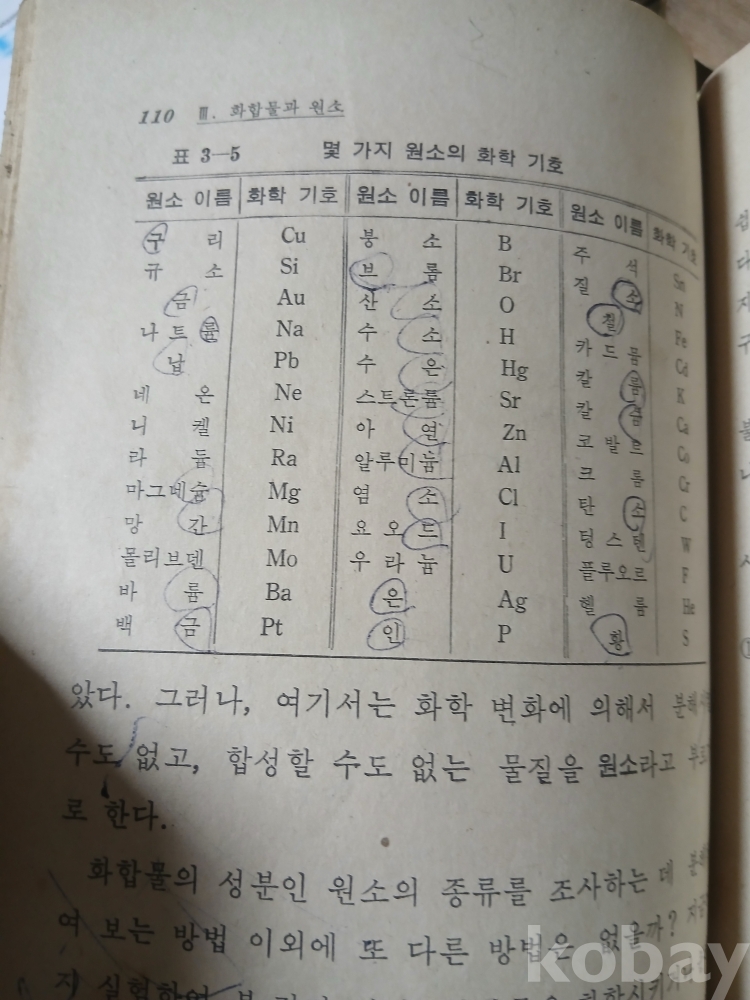 110 Ⅲ. 화합물과 원소
표 3—5 몇 가지 원소의 화학 기호
원소 이름 화학 기호 원소 이름 화학 기호 원소 이름 화학 기호
구리 Cu 붕소 B 주석 Sn
규소 Si 브롬 Br 질소 N
금 Au 산소 O 철 Fe
나트륨 Na 수소 H 카드뮴 Cd
납 Pb 수은 Hg 칼륨 K
네온 Ne 스트론튬 Sr 칼슘 Ca
니켈 Ni 아연 Zn 코발트 Co
라듐 Ra 알루미늄 Al 크롬 Cr
마그네슘 Mg 염소 Cl 탄소 C
망간 Mn 요오드 I 텅스텐 W
몰리브덴 Mo 우라늄 U 플루오르 F
바륨 Ba 은 Ag 헬륨 He
백금 Pt 인 P 황 S
았다. 그러나, 여기서는 화학 변화에 의해서 분해
수도 없고, 합성할 수도 없는 물질을 원소라고
로 한다.
화합물의 성분인 원소의 종류를 조사하는 데
여 보는 방법 이외에 또 다른 방법은 없을까?
지 실험하여
kobay